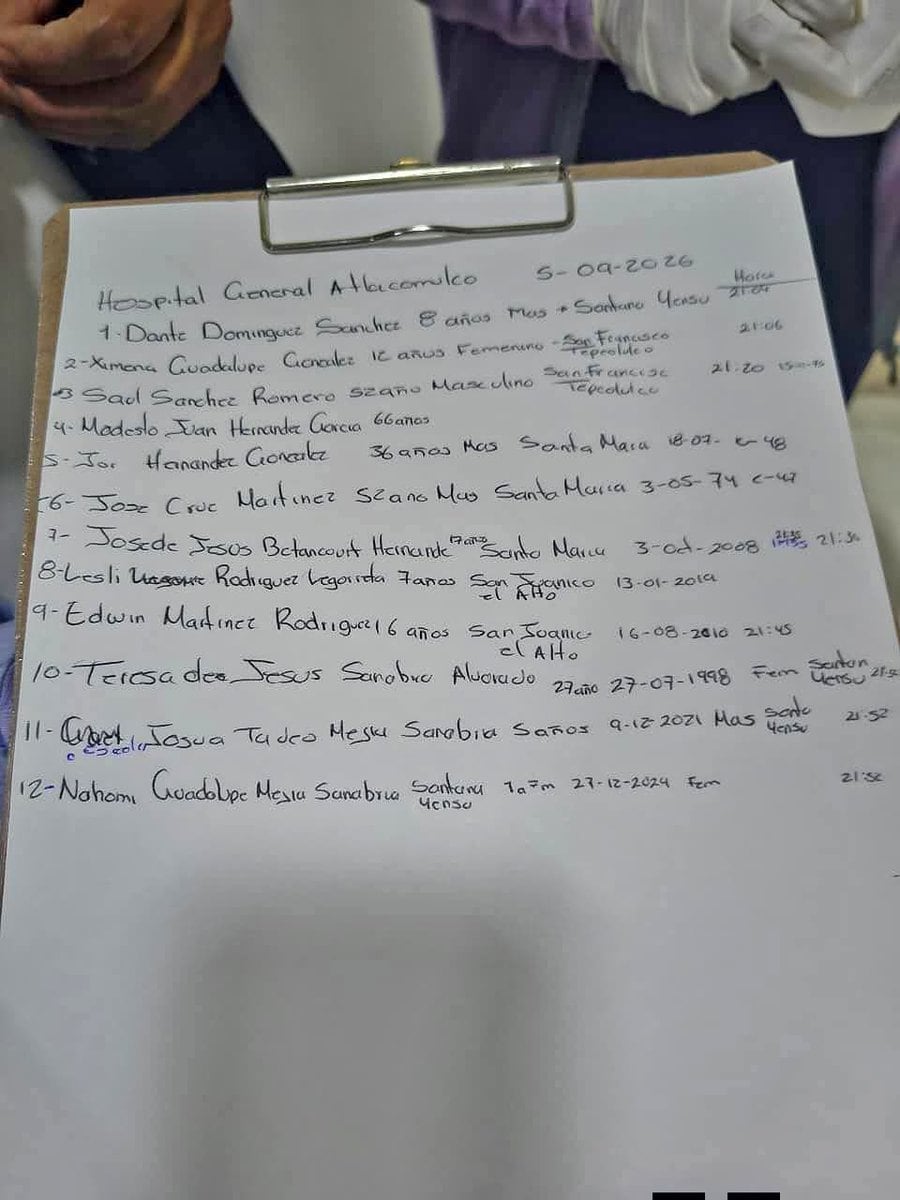 Hospital General Atlacomulco 5-09-2026 Hora
1-Dante Dominguez Sanchez 8 años Mas Santana Yensu 21:04
2-Ximena Guadalupe Gonzalez 12 años Femenino - San Francisco Tepeolulco 21:06
3 Saul Sanchez Romero 52año Masculino San Francisco Tepeolulco 21:20
4- Modesto Juan Hernandez Garcia 66años
5- Hernandez Gonzalez 36 años Mas Santa Maria 18-07-
6- Jose Cruz Martinez 52año Mas Santa Maria 3-05-74 c-47
7- Josede Jesus Betancourt Hernande 17año Santa Maria 3-Oct-2008
8-Lesli Rodriguez Legorreta 7años San Juanico el Alto 13-01-2019
9-Edwin Martinez Rodriguez 16 años San Joanico el Alto 16-08-2010 21:45
10-Teresa de Jesus Sanabria Alvarado 27año 27-07-1998 Fem Santan Yensu
11- Josua Tadeo Mejia Sanabria 5años 9-12-2021 Mas Santa Yensu 21:52
12-Nahomi Guadalupe Mejia Sanabria Santana Yensu 1a7m 27-12-2024 Fem 21:52